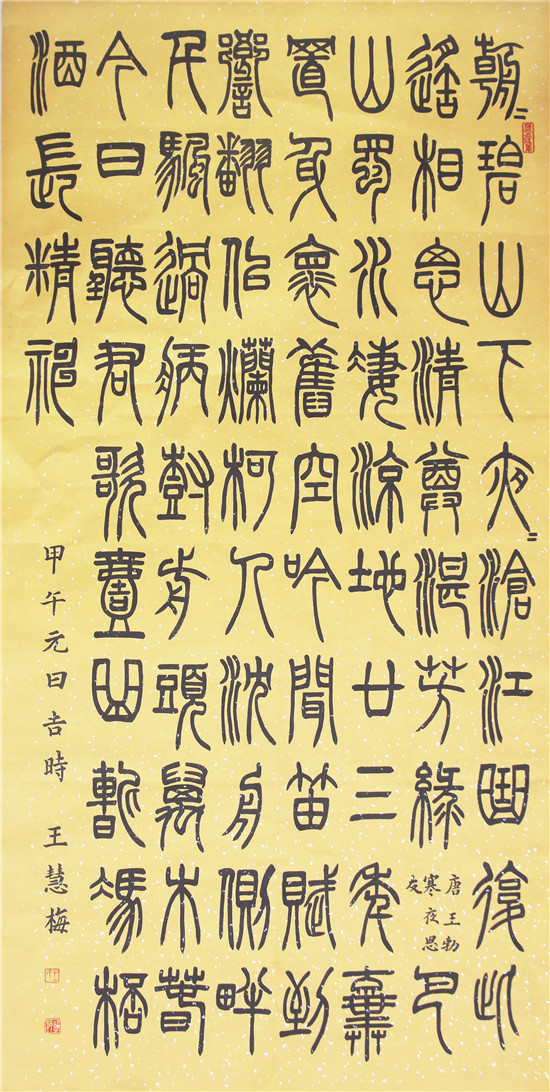 朝〻碧山下夜〻滄江曲復此
遙相思清尊湛芳綠
唐王勃
寒夜思
友
巴
山蜀水淒涼地廿三年棄
置身懷舊空吟聞笛賦到
響翻佀爛柯人沈舟側畔
千帆過病樹前頭萬木春
今日聽君歌壹曲暫憑桮
酒長精神
甲午元日吉時 王慧梅